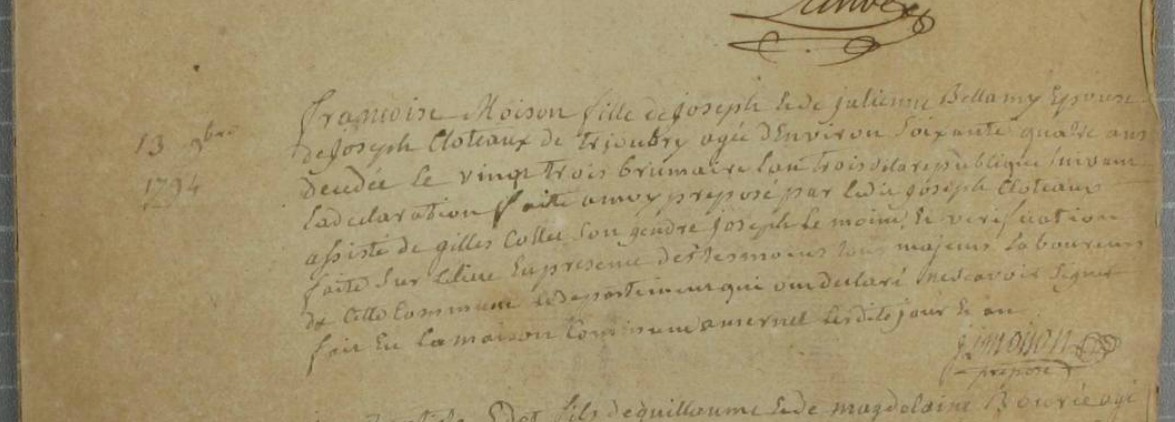 13 9bre
1794
françoise Moison fille de joseph & de julienne Bellamy Epouse
de joseph Cloteaux de trioubry agée dEnviron soixante quatre ans
decedée le vingt trois brumaire lan trois de la republique suivant
la declaration faite a moy preposé par ledit joseph Cloteaux
assisté de gilles Collet son gendre joseph le moine, & verification
faite sur le lieu En presence des tesmoins tous majeurs laboureurs
de cette commune & departement qui ont declaré ne scavoir signer
fait En la maison Commune a mernel lesdits jour & an
moison
preposé
fils de guillaume & de magdelaine agé